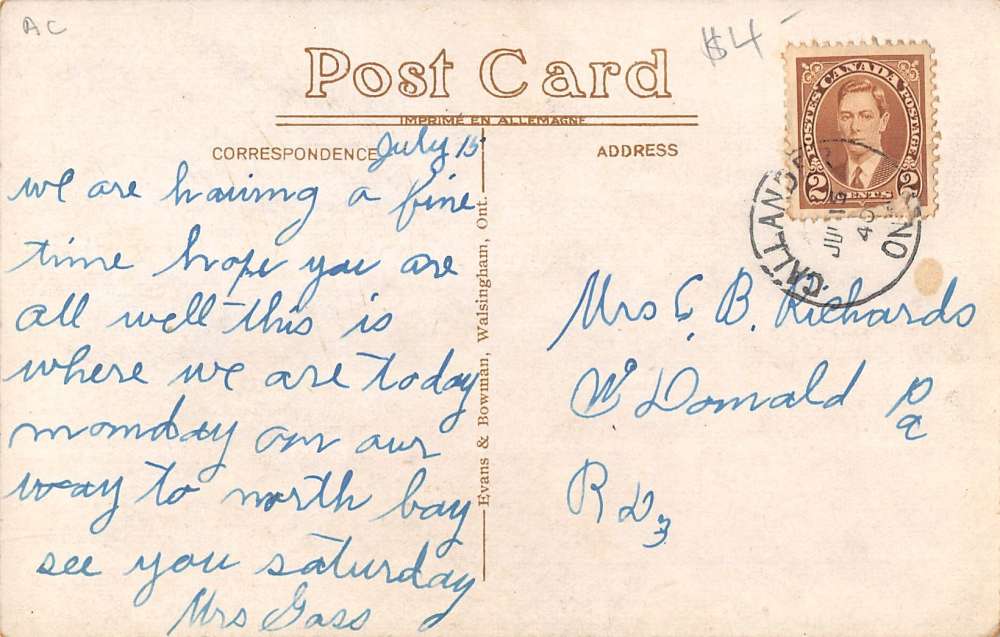 AC
$4
Post Card
IMPRIMÉ EN ALLEMAGNE
CORRESPONDENCE
ADDRESS
July 15
we are having a fine
time hope you are
all well this is
where we are today
monday on our
way to north bay
see you saturday
Mrs Gass
Evans & Bowman, Walsingham, Ont.
POSTES CANADA POSTAGE
2 CENTS 2
CALLANDER
JU 15
40
ONT
Mrs C. B. Richards
Mc Donald Pa
R D 3